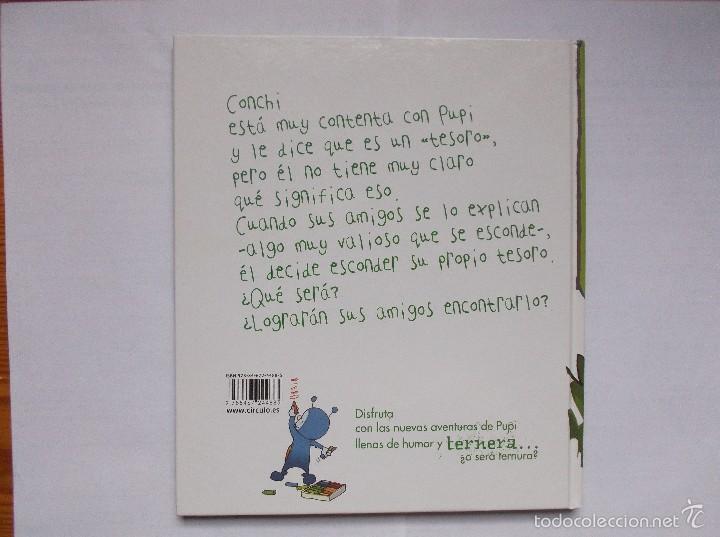 Conchi
está muy contenta con Pupi
y le dice que es un «tesoro»,
pero él no tiene muy claro
qué significa eso.
Cuando sus amigos se lo explican
-algo muy valioso que se esconde-,
él decide esconder su propio tesoro.
¿Qué será?
¿Lograrán sus amigos encontrarlo?
www.circulo.es
Disfruta
con las nuevas aventuras de Pupi
llenas de humor y ternera...
¿o será ternura?
todocoleccion.net